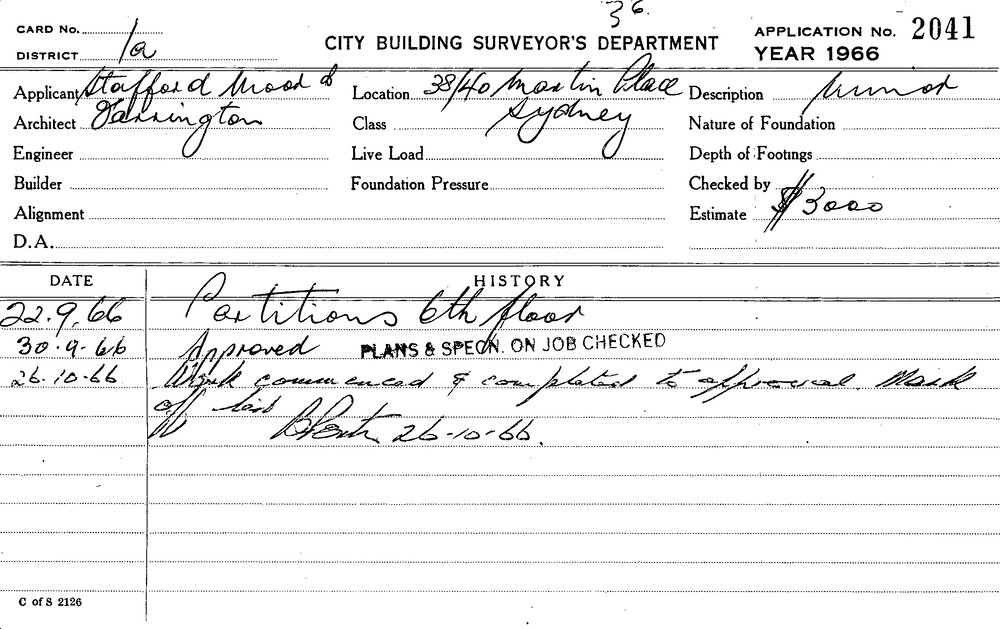 36.
CARD No. APPLICATION No. 2041
DISTRICT 1a CITY BUILDING SURVEYOR'S DEPARTMENT YEAR 1966
Applicant Stafford Moor & Location 38/40 Martin Place Description Minor
Architect Farrington Class Sydney Nature of Foundation
Engineer Live Load Depth of Footings
Builder Foundation Pressure Checked by
Alignment Estimate $3000
D.A.
DATE HISTORY
22.9.66 Partitions 6th floor
30.9.66 Approved PLANS & SPECN. ON JOB CHECKED
26.10.66 Work commenced & completed to approval. Mark
off list
26-10-66.
C of S 2126